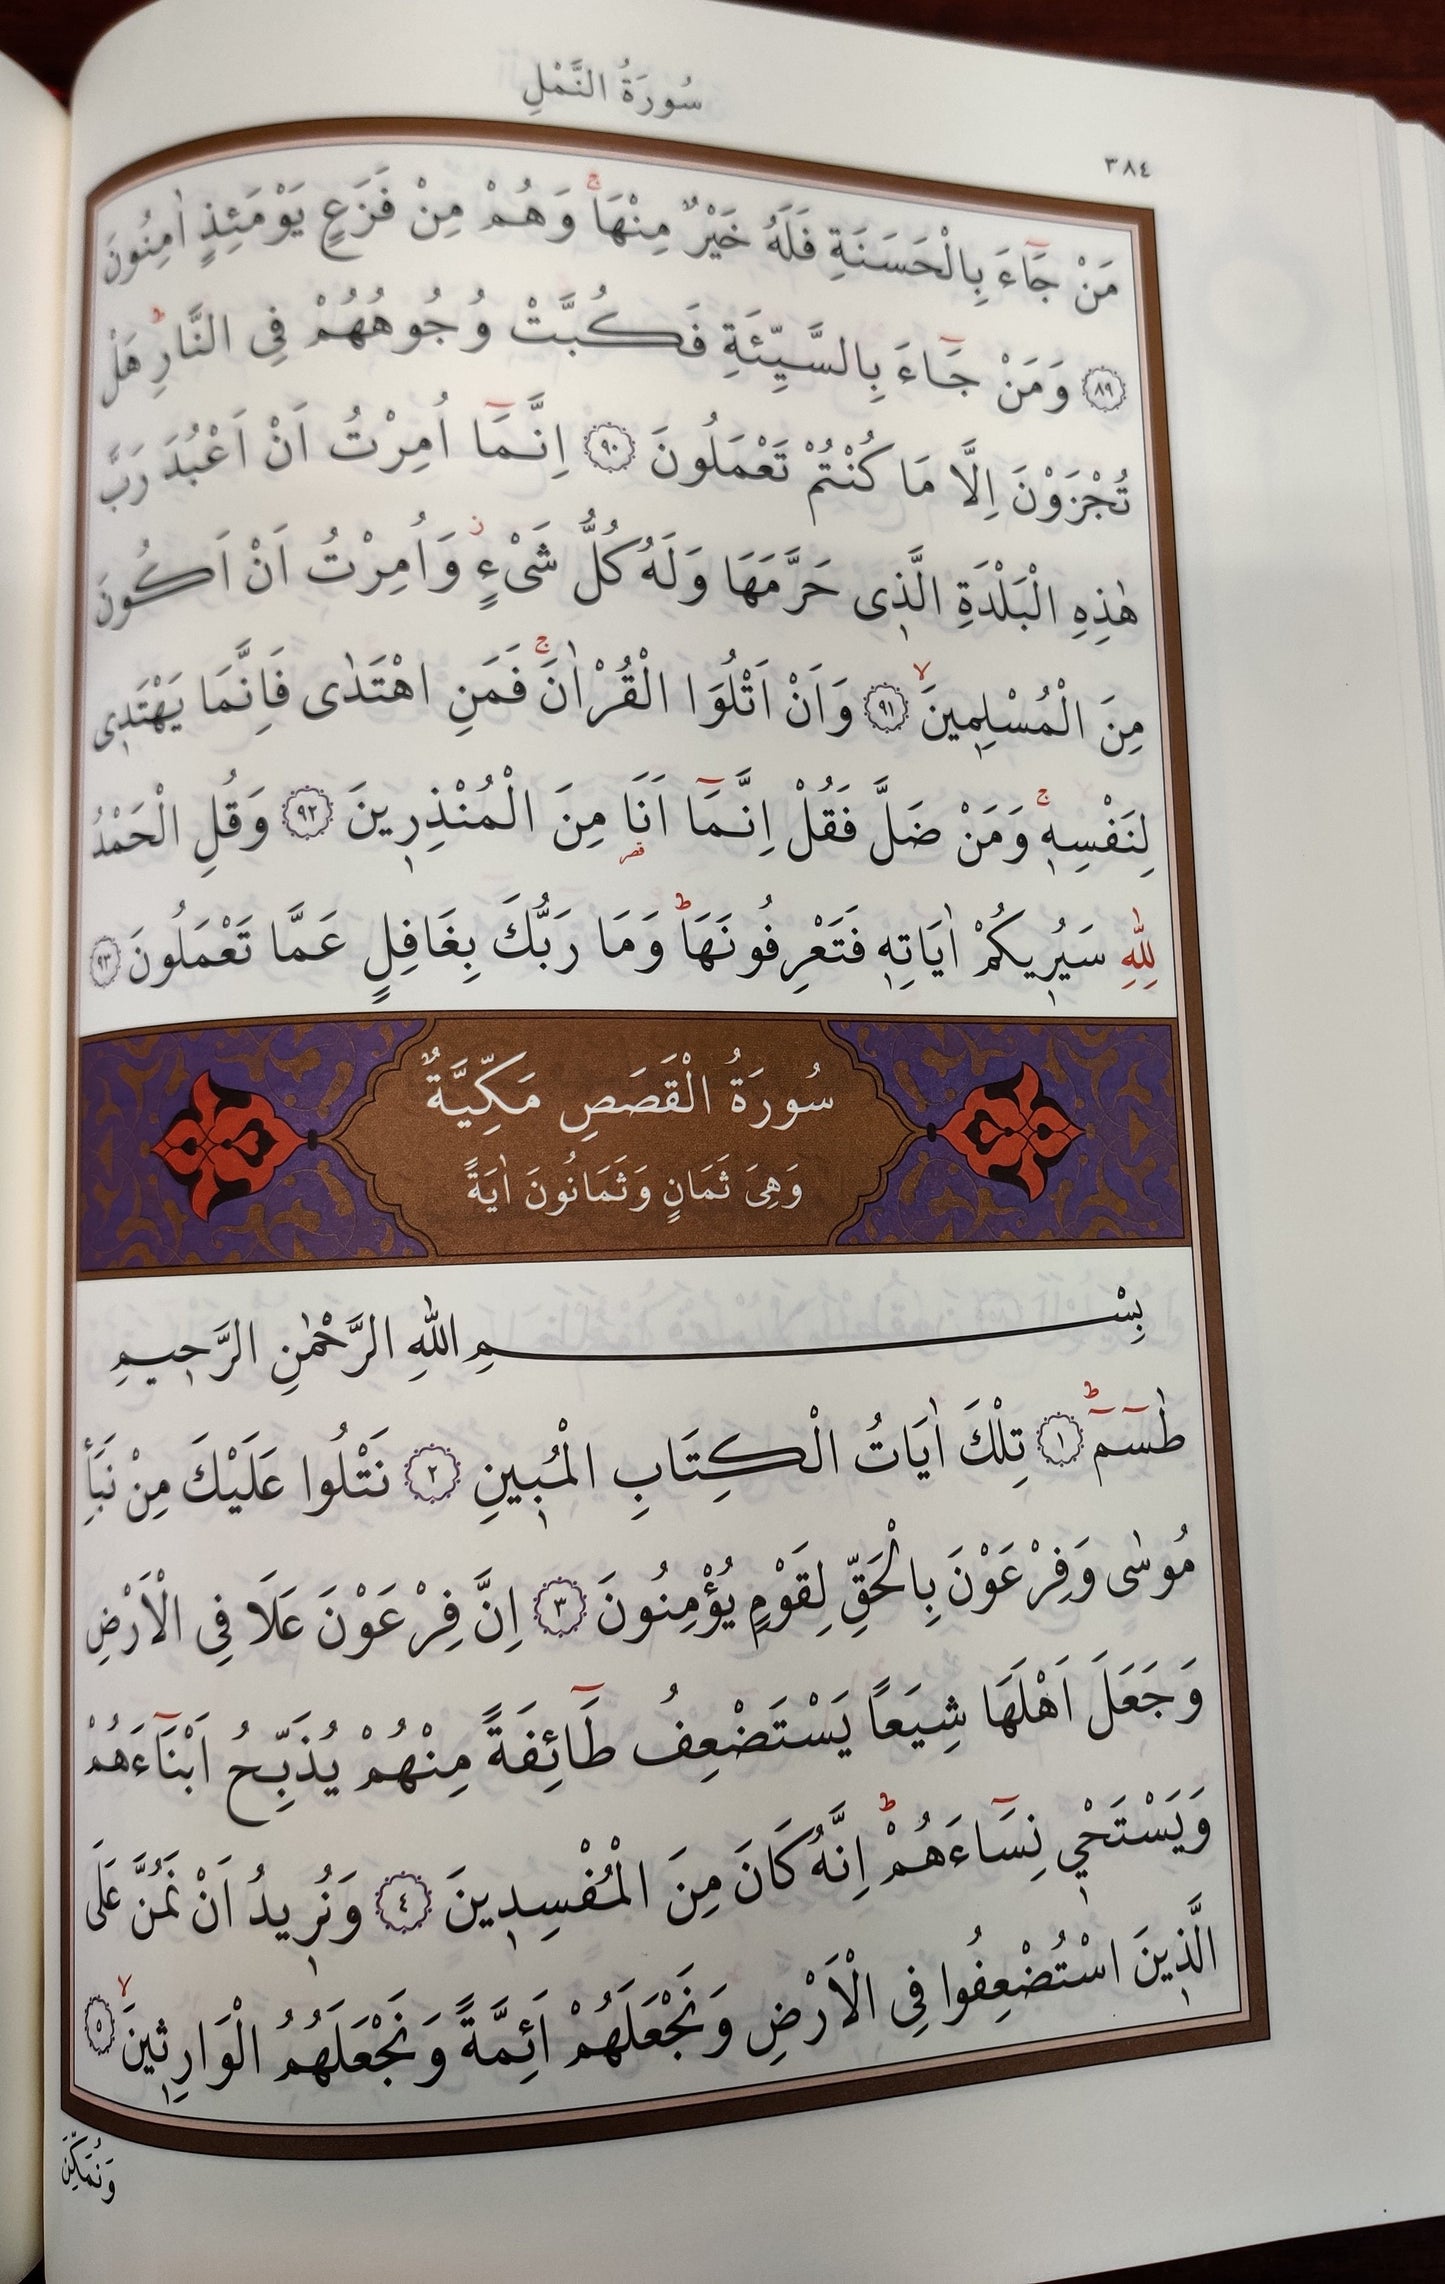 سُورَةُ النَّمْلِ
٣٨٤
مَنْ جَٓاءَ بِالْحَسَنَةِ فَلَهُ خَيْرٌ مِنْهَاۚ وَهُمْ مِنْ فَزَعٍ يَوْمَئِذٍ اٰمِنُونَ
﴿٨٩﴾ وَمَنْ جَٓاءَ بِالسَّيِّئَةِ فَكُبَّتْ وُجُوهُهُمْ فِى النَّارِؕ هَلْ
تُجْزَوْنَ اِلَّا مَا كُنْتُمْ تَعْمَلُونَ ﴿٩٠﴾ اِنَّمَٓا اُمِرْتُ اَنْ اَعْبُدَ رَبَّ
هٰذِهِ الْبَلْدَةِ الَّذ۪ى حَرَّمَهَا وَلَهُ كُلُّ شَىْءٍؗ وَاُمِرْتُ اَنْ اَكُونَ
مِنَ الْمُسْلِم۪ينَۙ ﴿٩١﴾ وَاَنْ اَتْلُوَا الْقُرْاٰنَۚ فَمَنِ اهْتَدٰى فَاِنَّمَا يَهْتَد۪ى
لِنَفْسِه۪ۚ وَمَنْ ضَلَّ فَقُلْ اِنَّمَٓا اَنَا۬ مِنَ الْمُنْذِر۪ينَ ﴿٩٢﴾ وَقُلِ الْحَمْدُ
لِلّٰهِ سَيُر۪يكُمْ اٰيَاتِه۪ فَتَعْرِفُونَهَاؕ وَمَا رَبُّكَ بِغَافِلٍ عَمَّا تَعْمَلُونَ ﴿٩٣﴾
سُورَةُ الْقَصَصِ مَكِّيَّةٌ
وَهِىَ ثَمَانٍ وَثَمَانُونَ اٰيَةً
بِسْمِ اللّٰهِ الرَّحْمٰنِ الرَّح۪يمِ
طٰسٓمٓؕ ﴿١﴾ تِلْكَ اٰيَاتُ الْكِتَابِ الْمُب۪ينِ ﴿٢﴾ نَتْلُوا عَلَيْكَ مِنْ نَبَأِ
مُوسٰى وَفِرْعَوْنَ بِالْحَقِّ لِقَوْمٍ يُؤْمِنُونَ ﴿٣﴾ اِنَّ فِرْعَوْنَ عَلَا فِى الْاَرْضِ
وَجَعَلَ اَهْلَهَا شِيَعًا يَسْتَضْعِفُ طَٓائِفَةً مِنْهُمْ يُذَبِّحُ اَبْنَٓاءَهُمْ
وَيَسْتَحْي۪ نِسَٓاءَهُمْؕ اِنَّهُ كَانَ مِنَ الْمُفْسِد۪ينَ ﴿٤﴾ وَنُر۪يدُ اَنْ نَمُنَّ عَلَى
الَّذ۪ينَ اسْتُضْعِفُوا فِى الْاَرْضِ وَنَجْعَلَهُمْ اَئِمَّةً وَنَجْعَلَهُمُ الْوَارِث۪ينَۙ ﴿٥﴾
وَنُمَكِّنَ